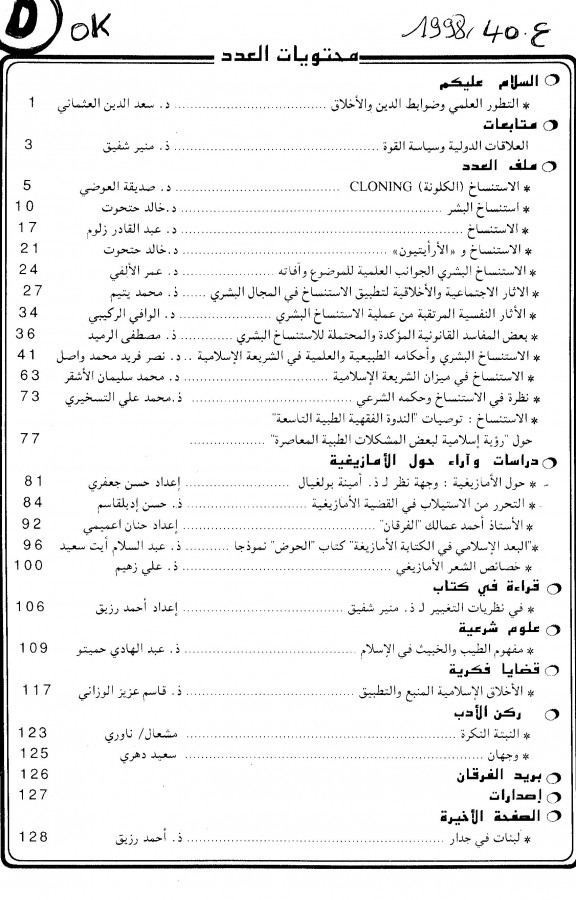 D OK ع.40، 1998
محتويات العدد
السلام عليكم
* التطور العلمي وضوابط الدين والأخلاق ........ د. سعد الدين العثماني 1
متابعات
العلاقات الدولية وسياسة القوة ........ ذ. منير شفيق 3
ملف العدد
* الاستنساخ (الكلونة) CLONING ........ د. صديقة العوضي 5
* استنساخ البشر ........ د.خالد حتحوت 10
* الاستنساخ ........ د. عبد القادر زلوم 17
* الاستنساخ و «الأرأيتيون» ........ د.خالد حتحوت 21
* الاستنساخ البشري الجوانب العلمية للموضوع وآفاته ........ د. عمر الألفي 24
* الاثار الاجتماعية والأخلاقية لتطبيق الاستنساخ في المجال البشري ...... ذ. محمد يتيم 27
* الأثار النفسية المرتقبة من عملية الاستنساخ البشري ........ د. الوافي الركيبي 34
* بعض المفاسد القانونية المؤكدة والمحتملة للاستنساخ البشري ........ ذ. مصطفى الرميد 36
* الاستنساخ البشري وأحكامه الطبيعية والعلمية في الشريعة الإسلامية ..د. نصر فريد محمد واصل 41
* الاستنساخ في ميزان الشريعة الإسلامية ........ د. محمد سليمان الأشقر 63
* نظرة في الاستنساخ وحكمه الشرعي ........ ذ.محمد علي التسخيري 73
* الاستنساخ : توصيات "الندوة الفقهية الطبية التاسعة"
حول "رؤية إسلامية لبعض المشكلات الطبية المعاصرة" ........ 77
دراسات وآراء حول الأمازيغية
* حول الأمازيغية : وجهة نظر لـ ذ. أمينة بولغيال ........ إعداد حسن جعفري 81
* التحرر من الاستيلاب في القضية الأمازيغية ........ ذ. حسن إدبلقاسم 84
* الأستاذ أحمد عمالك "الفرقان" ........ إعداد حنان اعميمي 92
*"البعد الإسلامي في الكتابة الأمازيغة" كتاب "الحوض" نموذجا ........ ذ. عبد السلام أيت سعيد 96
* خصائص الشعر الأمازيغي ........ ذ. علي زهيم 100
قراءة في كتاب
* في نظريات التغيير لـ ذ. منير شفيق ........ إعداد أحمد رزيق 106
علوم شرعية
* مفهوم الطيب والخبيث في الإسلام ........ ذ. عبد الهادي حميتو 109
قضايا فكرية
* الأخلاق الإسلامية المنبع والتطبيق ........ ذ. قاسم عزيز الوزاني 117
ركن الأدب
* النبتة النكرة ........ مشعال/ ناوري 123
* وجهان ........ سعيد دهري 125
بريد الفرقان 126
إصدارات 127
الصفحة الأخيرة
* لبنات في جدار ........ ذ. أحمد رزيق 128